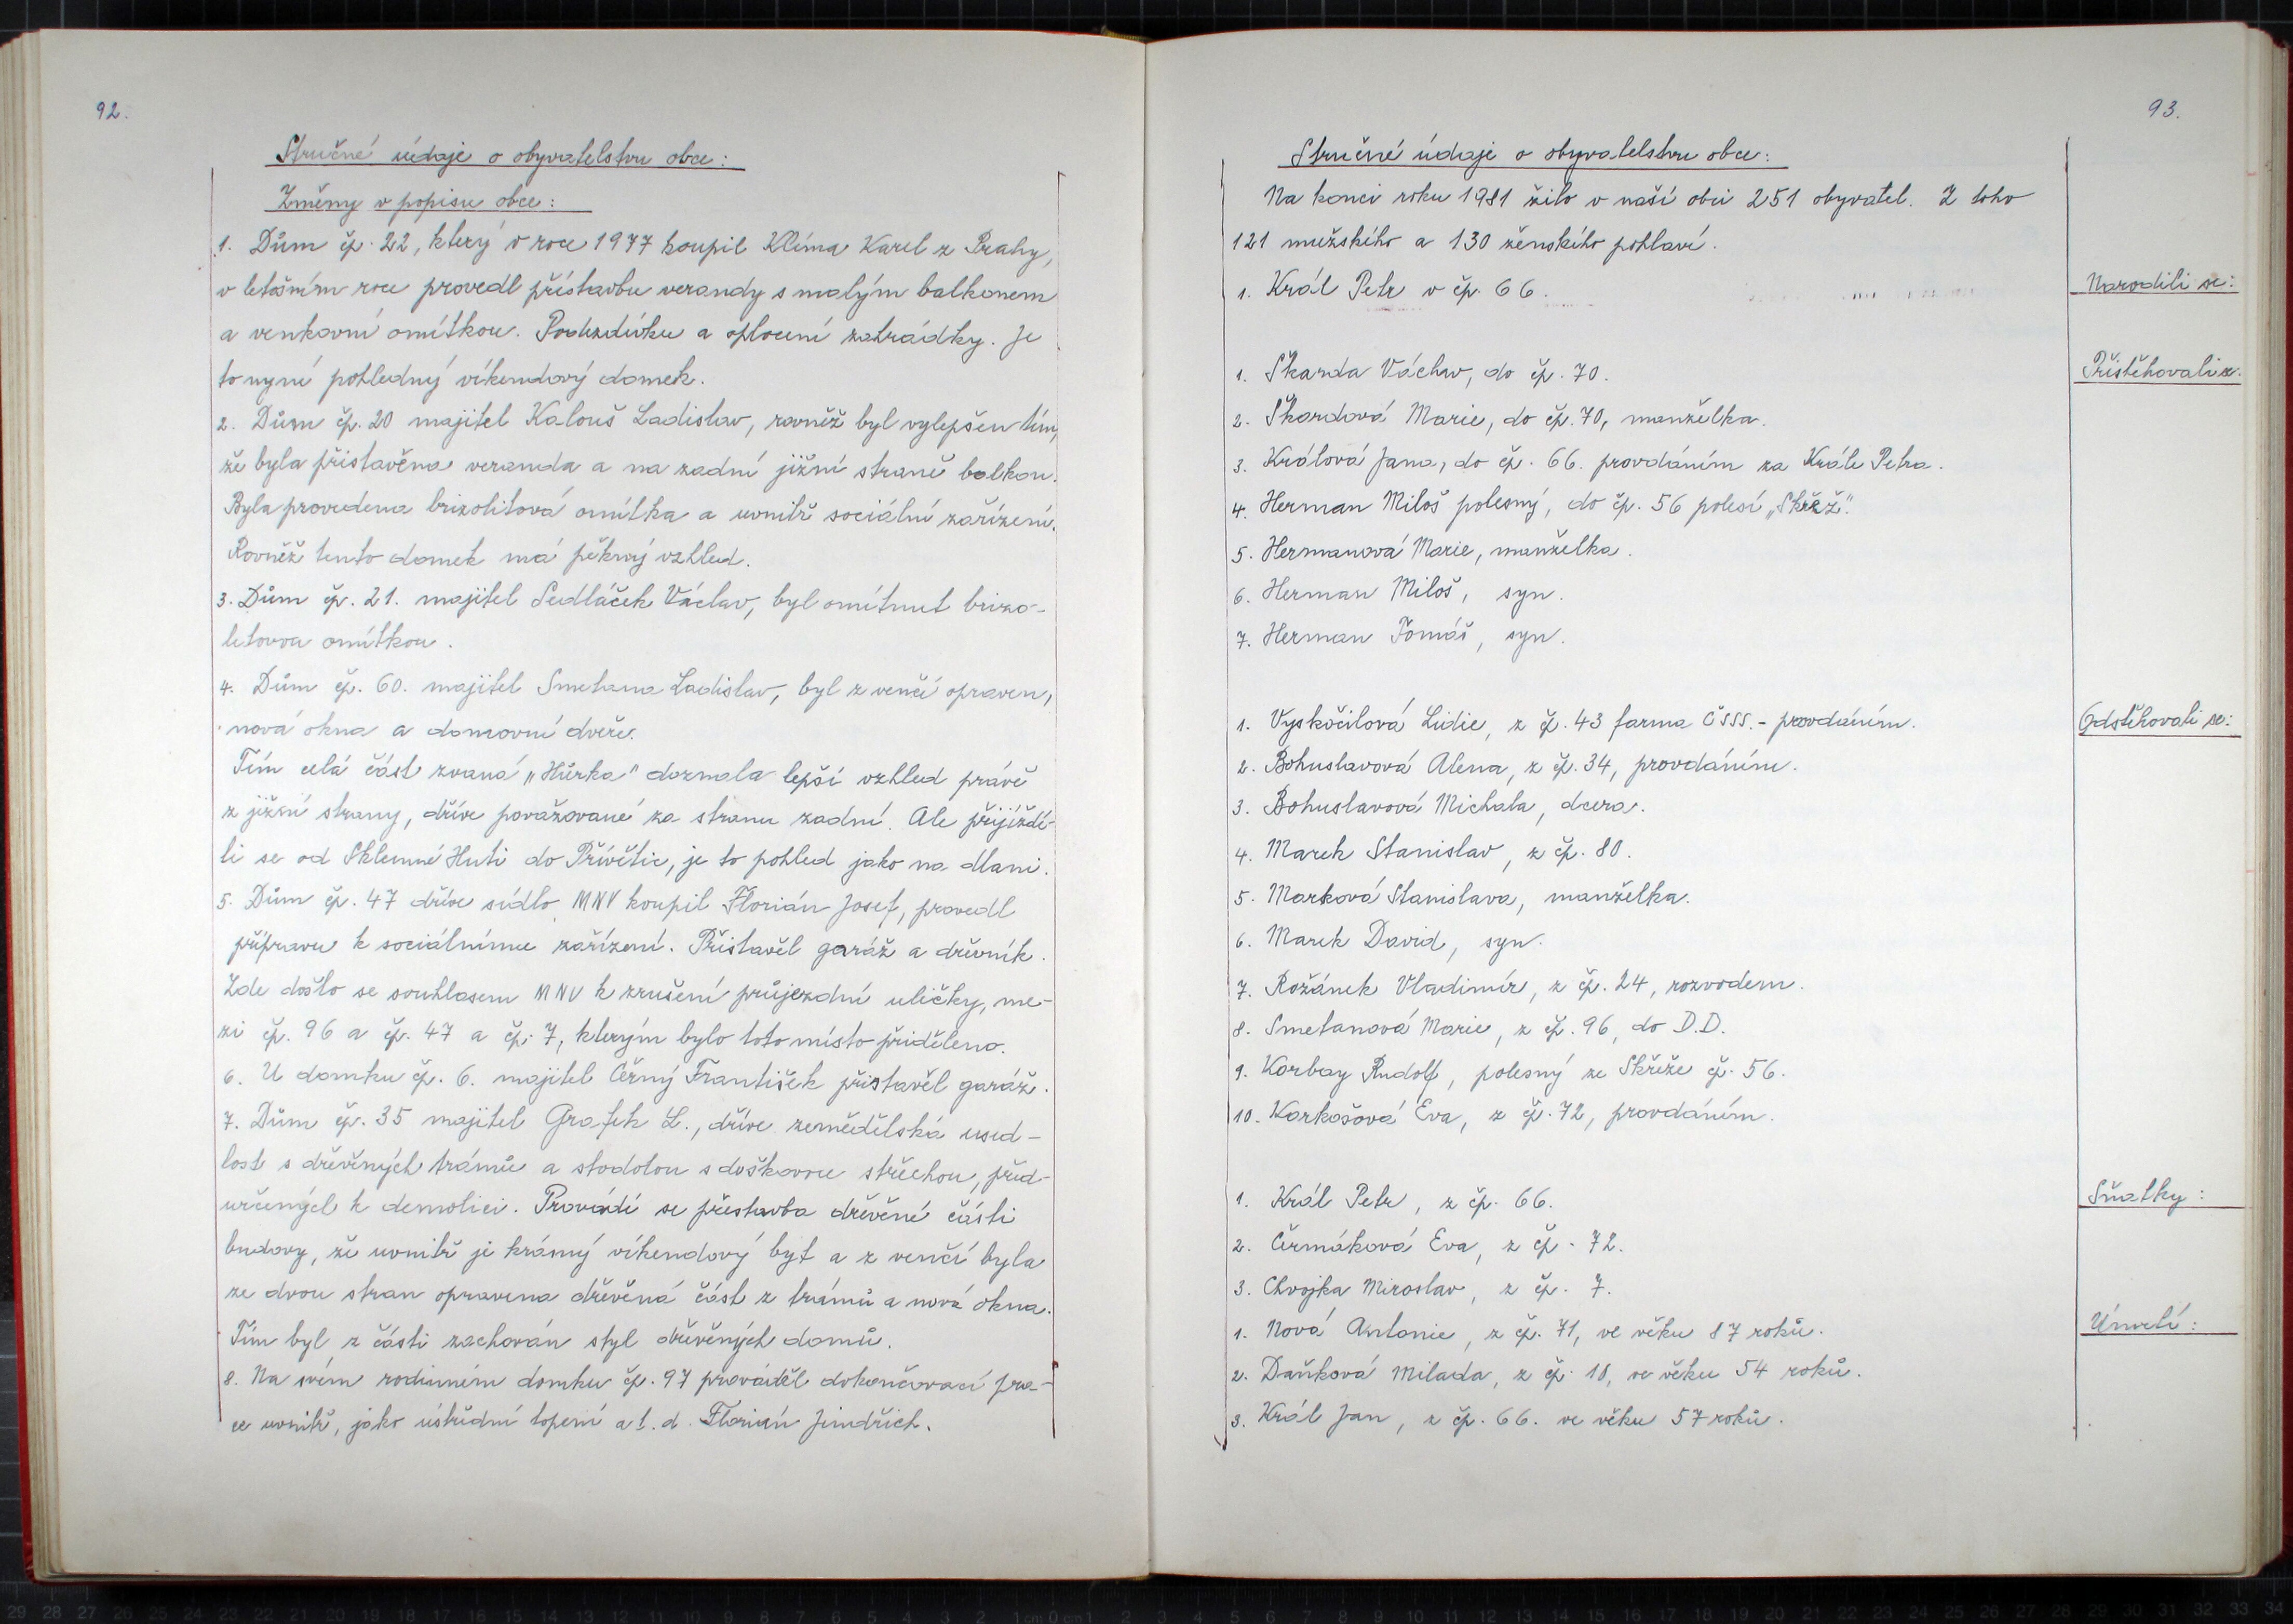 92.
Stručné údaje o obyvatelstvu obce:
Změny v popisu obce:
1. Dům čp. 22, který v roce 1977 koupil Klíma Karel z Prahy,
v letošním roce provedl přístavbu verandy s malým balkonem
a venkovní omítkou. Podezdívku a oplocení zahrádky. Je
to nyní pohledný víkendový domek.
2. Dům čp. 20 majitel Kalouš Ladislav, rovněž byl vylepšen tím,
že byla přistavěna veranda a na zadní jižní straně balkon.
Byla provedena brizolitová omítka a uvnitř sociální zařízení.
Rovněž tento domek má pěkný vzhled.
3. Dům čp. 21. majitel Sedláček Václav, byl omítnut brizo-
letovou omítkou.
4. Dům čp. 60. majitel Smetana Ladislav, byl z venčí opraven,
nová okna a domovní dveře.
Tím celá část zvaná „Hůrka" doznala lepší vzhled právě
z jižní strany, dříve považované za stranu zadní. Ale přijíždí-
li se od Sklenné Huti do Přívětic, je to pohled jako na dlani.
5. Dům čp. 47 dříve sídlo MNV koupil Florián Josef, provedl
přípravu k sociálnímu zařízení. Přistavěl garáž a dřevník.
Zde došlo se souhlasem MNV k zrušení průjezdní uličky, me-
zi čp. 96 a čp. 47 a čp. 7, kterým bylo toto místo přiděleno.
6. U domku čp. 6. majitel Černý František přistavěl garáž.
7. Dům čp. 35 majitel Grafek L., dříve zemědělská used-
lost s dřevěných trámů a stodolou s doškovou střechou, před-
určených k demolici. Provádí se přestavba dřevěné části
budovy, že uvnitř je krásný víkendový byt a z venčí byla
ze dvou stran opravena dřevěná část z trámů a nová okna.
Tím byl z části zachován styl dřevěných domů.
8. Na svém rodinném domku čp. 97 prováděl dokončovací prá-
ce uvnitř, jako ústřední topení a t. d. Florián Jindřich.
93.
Stručné údaje o obyvatelstvu obce:
Na konci roku 1981 žilo v naší obci 251 obyvatel. Z toho
121 mužského a 130 ženského pohlaví.
Narodili se:
1. Král Petr v čp. 66.
Přistěhovali se:
1. Škarda Václav, do čp. 70.
2. Škardová Marie, do čp. 70, manželka.
3. Králová Jana, do čp. 66. provdáním za Krále Petra.
4. Herman Miloš polesný, do čp. 56 polesí „Skřež".
5. Hermanová Marie, manželka.
6. Herman Miloš, syn.
7. Herman Tomáš, syn.
Odstěhovali se:
1. Vyskočilová Lidie, z čp. 43 farma ČSSS. - provdáním.
2. Bohuslavová Alena, z čp. 34, provdáním.
3. Bohuslavová Michala, dcera.
4. Marek Stanislav, z čp. 80.
5. Marková Stanislava, manželka.
6. Marek David, syn.
7. Rožánek Vladimír, z čp. 24, rozvodem.
8. Smetanová Marie, z čp. 96, do D.D.
9. Korbay Rudolf, polesný ze Skřeže čp. 56.
10. Karkošová Eva, z čp. 72, provdáním.
Sňatky:
1. Král Petr, z čp. 66.
2. Čermáková Eva, z čp. 72.
3. Chvojka Miroslav, z čp. 7.
Úmrtí:
1. Nová Antonie, z čp. 71, ve věku 87 roků.
2. Daňková Milada, z čp. 18, ve věku 54 roků.
3. Král Jan, z čp. 66. ve věku 57 roků.